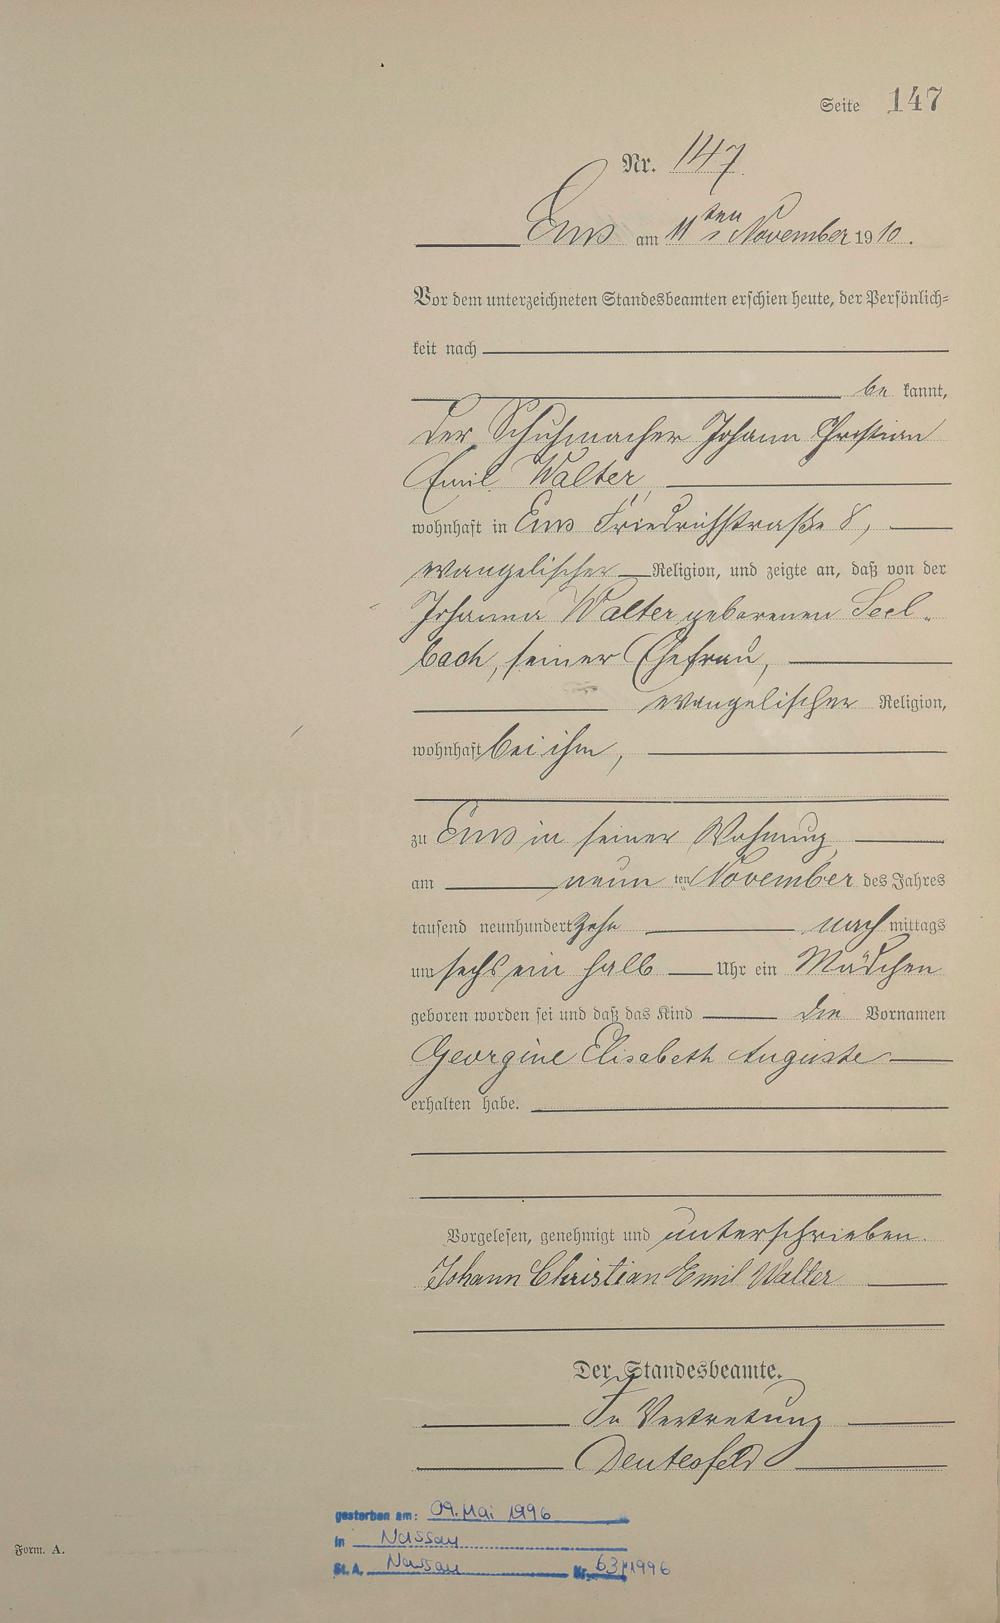 Seite 147
Nr. 147
Ems am 11ten November 1910.
Vor dem unterzeichneten Standesbeamten erschien heute, der Persönlich=
keit nach
be kannt,
der Schuhmacher Johann Christian
Emil Walter,
wohnhaft in Ems Friedrichstraße 8,
evangelischer Religion, und zeigte an, daß von der
Johanna Walter geborenen Seel-
bach, seiner Ehefrau,
evangelischer Religion,
wohnhaft bei ihm,
zu Ems in seiner Wohnung,
am neun ten November des Jahres
tausend neunhundert zehn nach mittags
um sechs ein halb Uhr ein Mädchen
geboren worden sei und daß das Kind die Vornamen
Georgine Elisabeth Auguste
erhalten habe.
Vorgelesen, genehmigt und unterschrieben.
Johann Christian Emil Walter
Der Standesbeamte.
In Vertretung
gestorben am: 09. Mai 1996
in Nassau
St. A. Nassau Nr. 63/1996
Form. A.